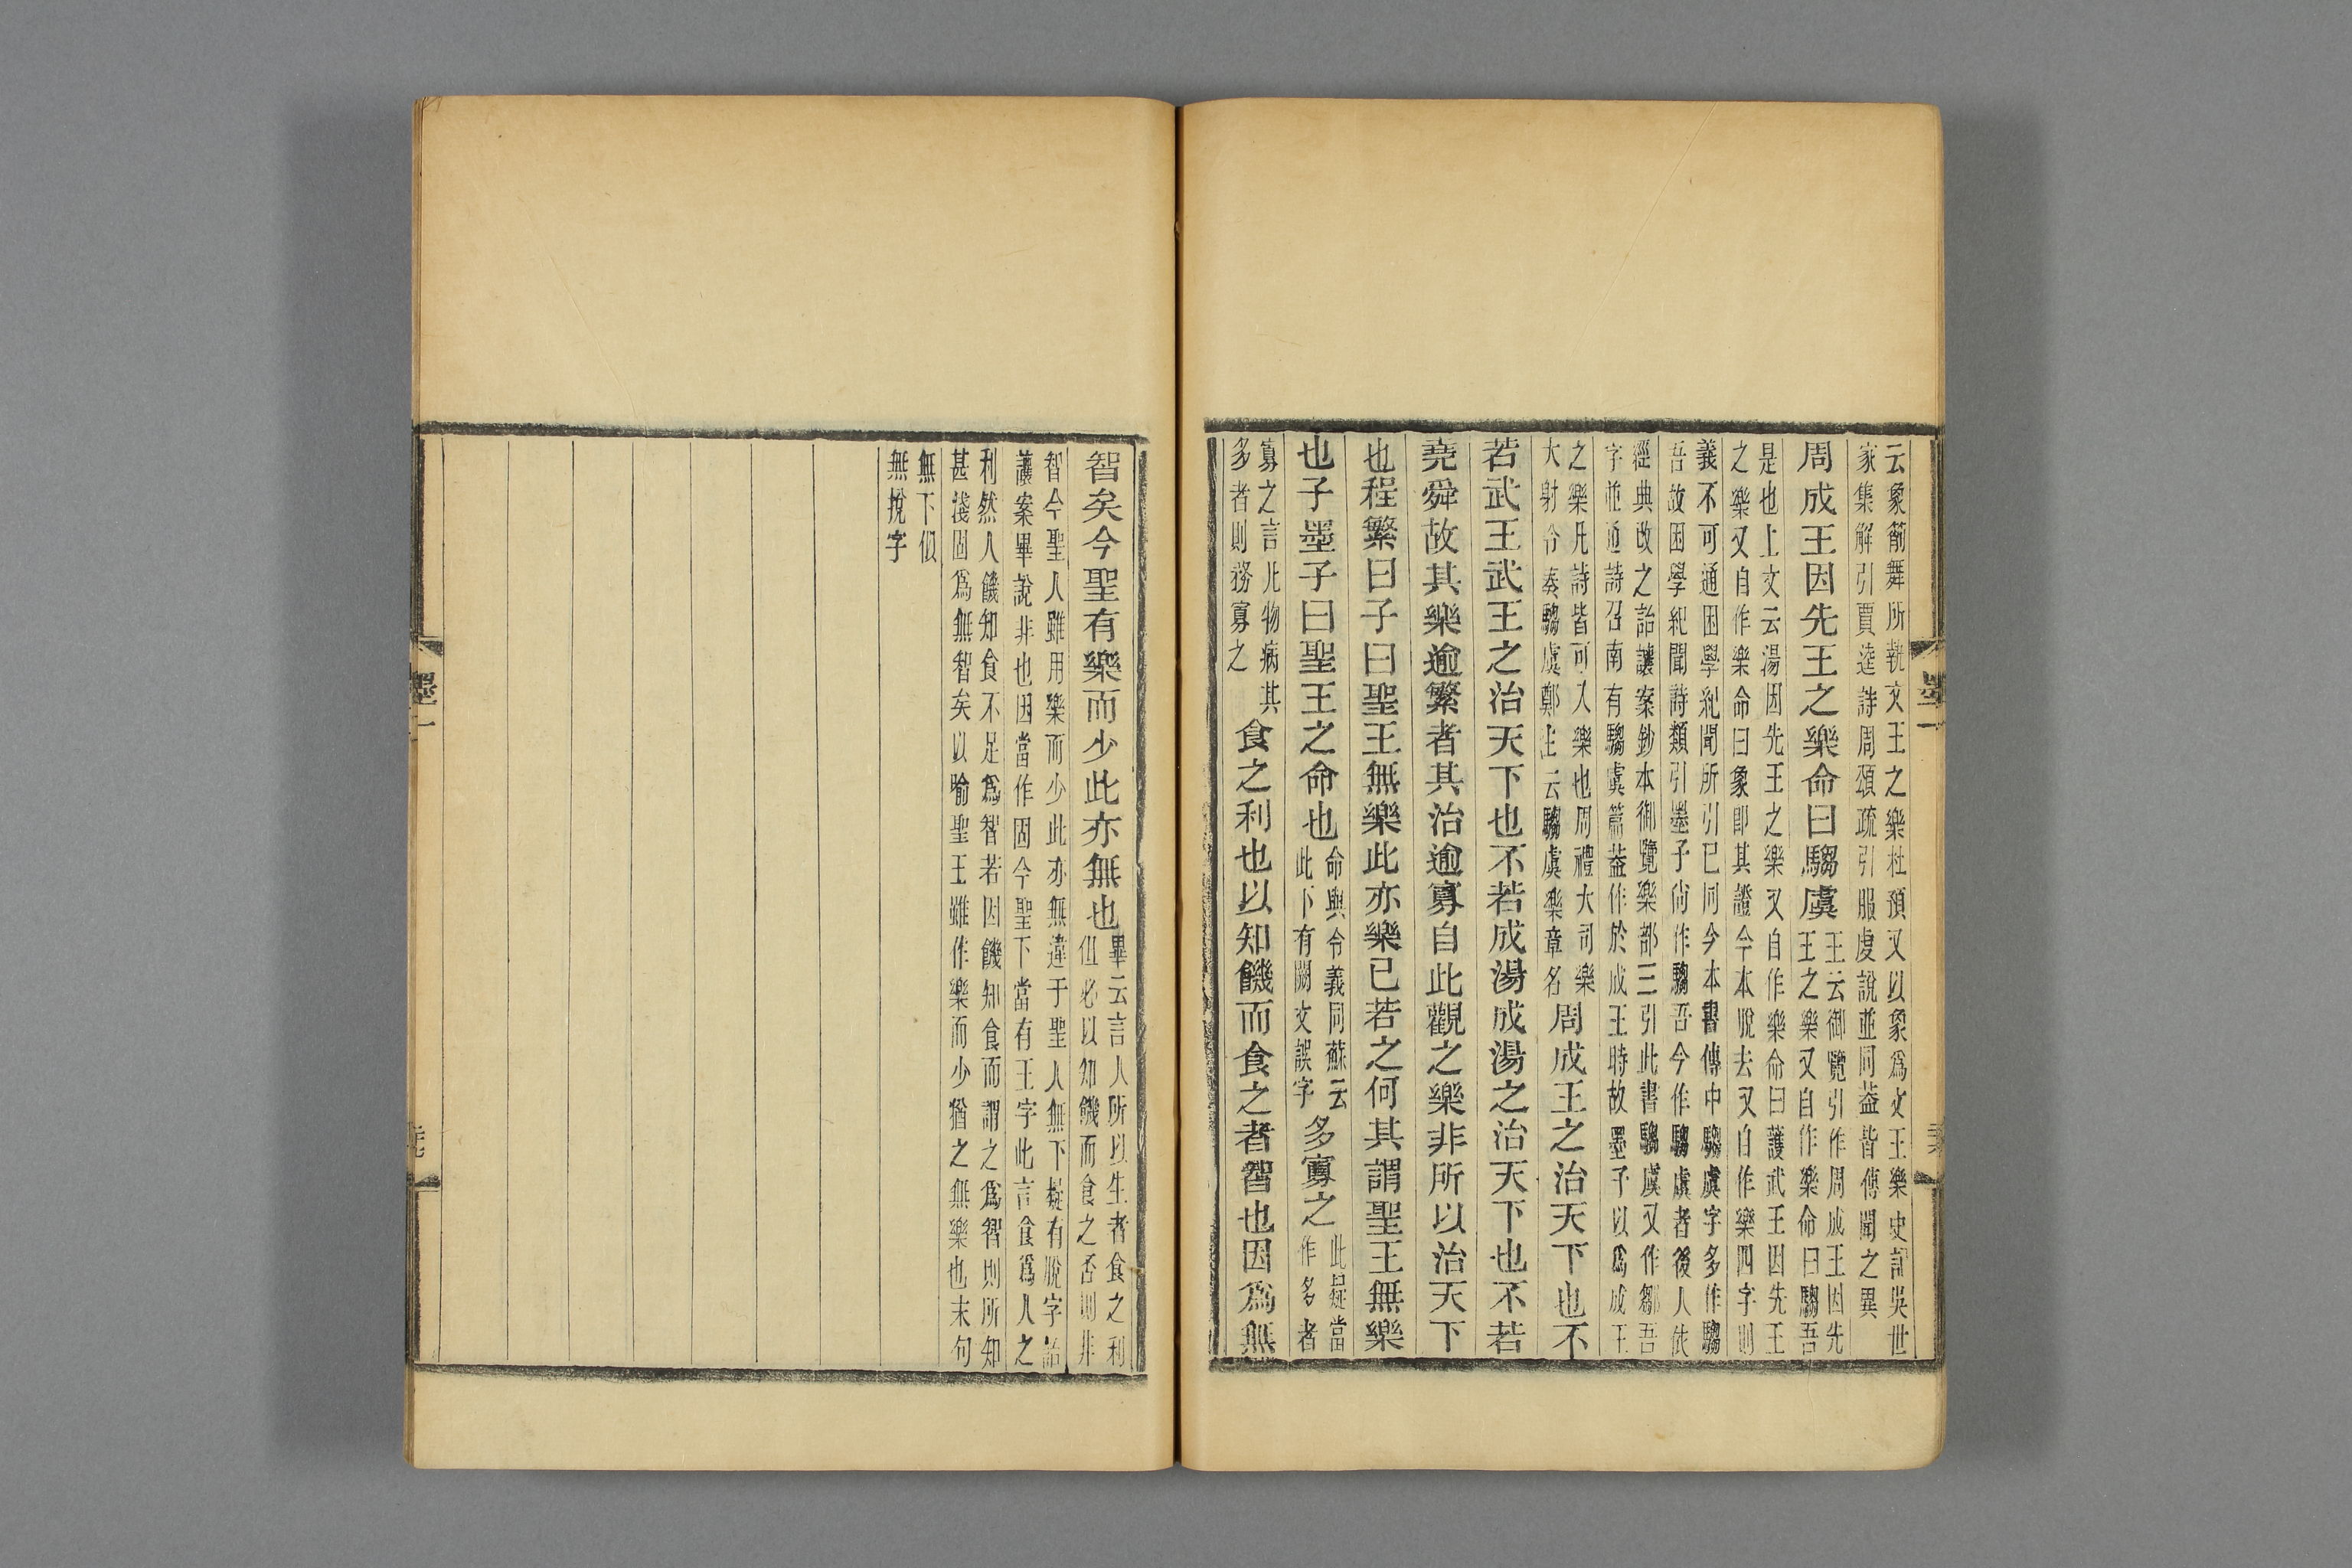 云象箾舞所執文王之樂杜預又以象爲文王樂史記吳世
家集解引賈逵詩周頌疏引服虔說並同蓋皆傳聞之異
周成王因先王之樂命曰騶虞
王云御覽引作周成王因先
王之樂又自作樂命曰騶吾
是也上文云湯因先王之樂又自作樂命曰護武王因先王
之樂又自作樂命曰象即其證今本脫去又自作樂四字則
義不可通困學紀聞所引已同今本書傳中騶虞字多作騶
吾故困學紀聞詩類引墨子尚作騶吾今作騶虞者後人依
經典改之詒讓案鈔本御覽樂部三引此書騶虞又作鄒吾
字並通詩召南有騶虞篇蓋作於成王時故墨子以爲成王
之樂凡詩皆可入樂也周禮大司樂
大射令奏騶虞鄭注云騶虞樂章名
周成王之治天下也不
若武王武王之治天下也不若成湯成湯之治天下也不若
堯舜故其樂逾繁者其治逾寡自此觀之樂非所以治天下
也程繁曰子曰聖王無樂此亦樂已若之何其謂聖王無樂
也子墨子曰聖王之命也
命與令義同蘇云
此下有闕文誤字
多寡之
此疑當
作多者
寡之言凡物病其
多者則務寡之
食之利也以知饑而食之者智也因爲無
智矣今聖有樂而少此亦無也
畢云言人所以生者食之利
但必以知饑而食之否則非
智今聖人雖用樂而少此亦無違于聖人無下疑有脫字詒
讓案畢說非也因當作固今聖下當有王字此言食爲人之
利然人饑知食不足爲智若因饑知食而謂之爲智則所知
甚淺固爲無智矣以喻聖王雖作樂而少猶之無樂也末句
無下似
無挩字
墨一
墨一